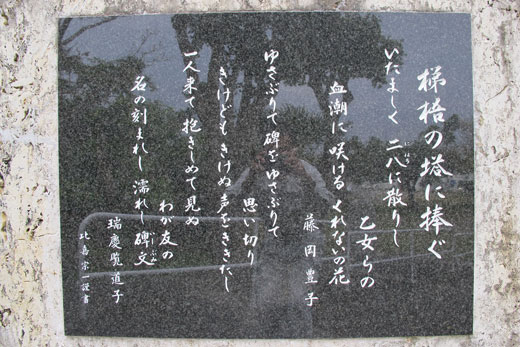 梯梧の塔に捧ぐ
いたましく 二八に散りし
乙女らの
血潮に咲ける くれないの花
藤岡豊子
ゆさぶりて 碑をゆさぶりて
思い切り
きけども きけぬ声をききたし
一人来て 抱きしめて見ぬ
わが友の
名の刻まれし 濡れし碑文
瑞慶覧道子
比嘉宗一謹書